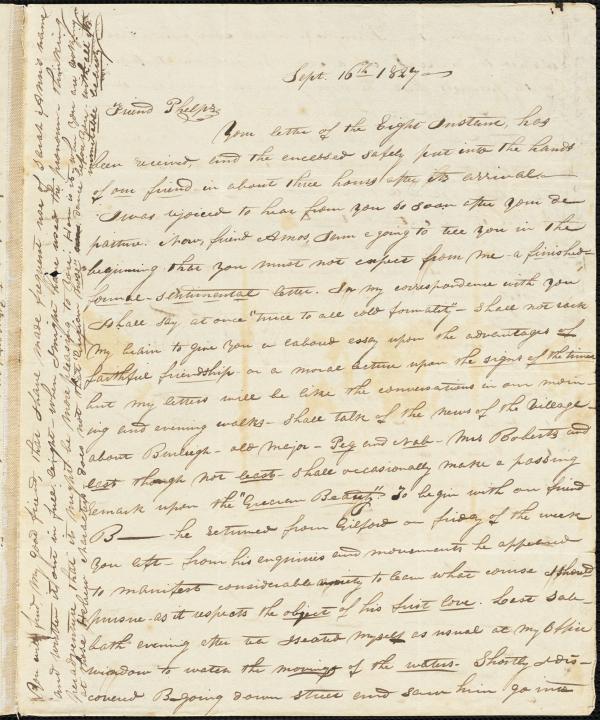 Sept. 16th 1827
Friend Phelps
Your letter of the Eight Instant, has
been received, and the enclosed safely put into the hands
of our friend in about three hours after its arrival.
I was rejoiced to hear from you so soon after your de
parture. Now, friend Amos, I am going to tell you in the
beginning that you must not expect from me a finished
formal sentimental letter. In my correspondence with you
I shall say, at once "truce to all cold formality" - Shall not rack
my brain to give you a laboured essay upon the advantages of
faithful friendship or a moral lecture upon the signs of the times
but my letters will be like the conversations in our morn-
ing and evening walks - Shall talk of the news of the village -
about Burleigh - old Major - Peg and Nab - Mrs Roberts and
last though not least - Shall occasionally make a passing
remark upon the "Grecian Beauty". To begin with our friend
B—— he returned from Gilford on friday of the week
you left - from his enquiries and movements he appeared
to manifest considerable to learn what course I should
pursue as it respects the object of his first love. Last Sab-
bath evening after tea I seated myself as usual at my Office
window to watch the moving of the waters. Shortly I dis-
covered B going down street and saw him go into
You will find, my good friend, that I have made frequent use of Sarah Ann's name
and written it out in full length - when I might have used the pronoun - thinking
peradventure that it might be more pleasing to you. How is it when you are